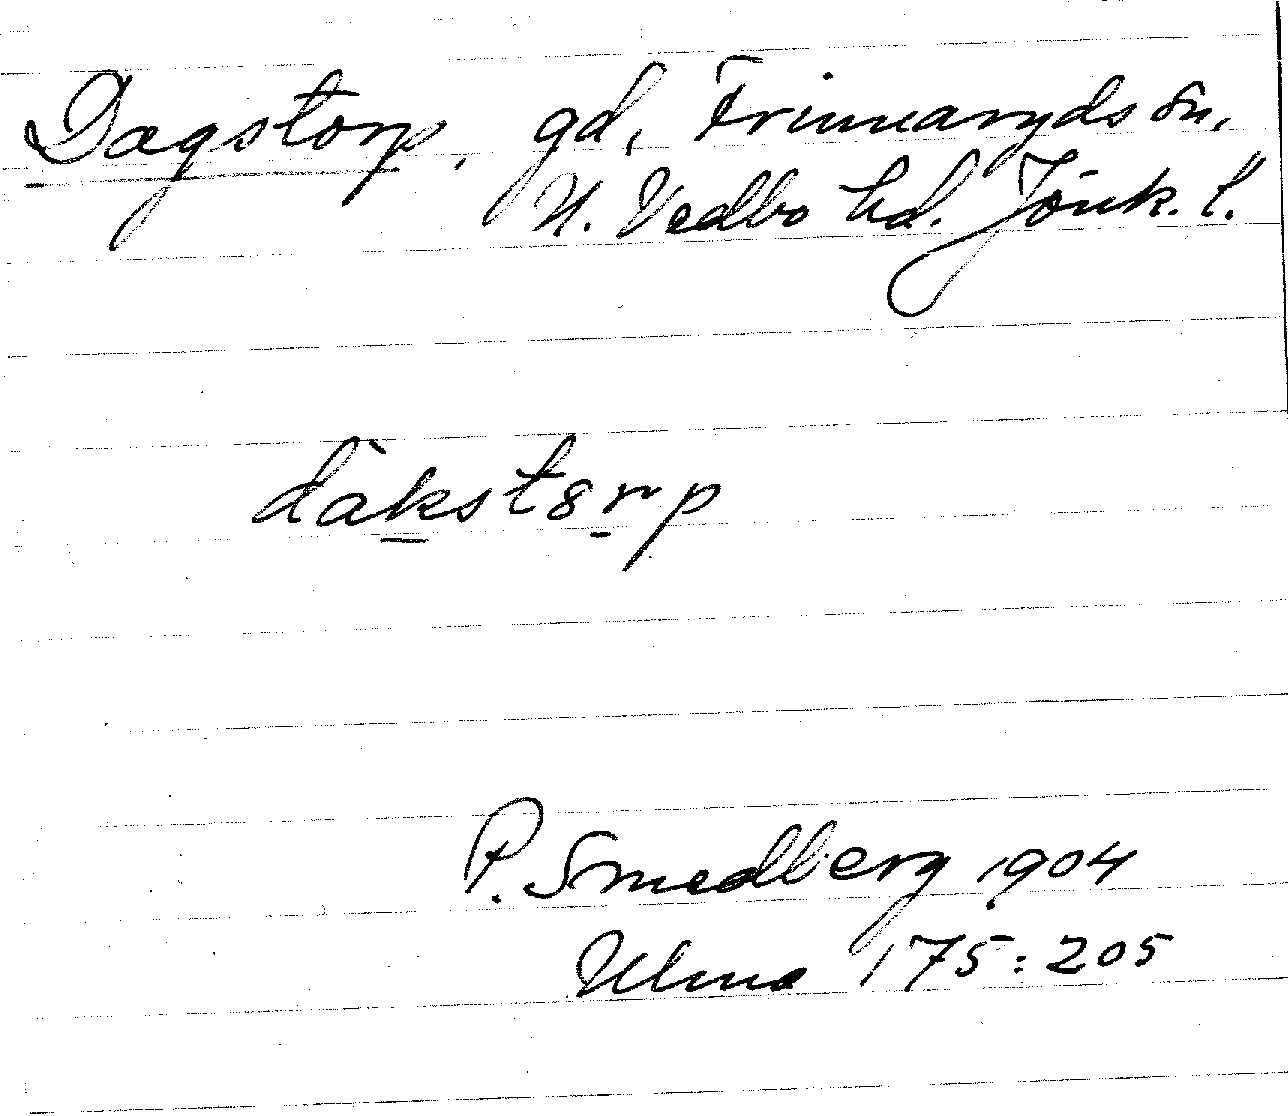 Dagstorp, gd, Frinnaryds sn,
N. Vedbo hd. Jönk. l.
dàkst8rp
P. Smedberg 1904
Ulma 175:205